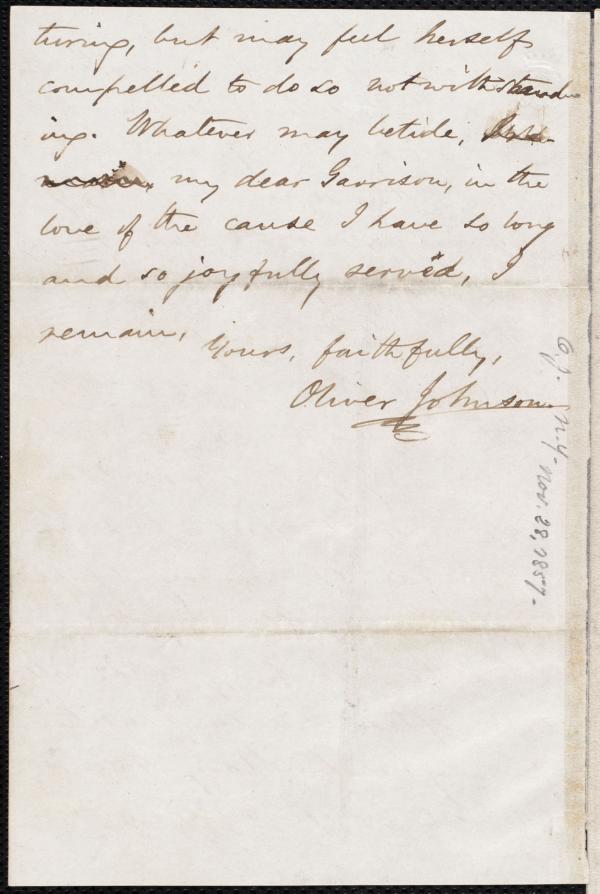 turing, but may feel herself
compelled to do so notwithstand-
ing. Whatever may betide,
my dear Garrison, in the
love of the cause I have so long
and so joyfully served, I
remain,
Yours, faithfully,
Oliver Johnson.
O.J. N.Y. Nov. 28, 1857.